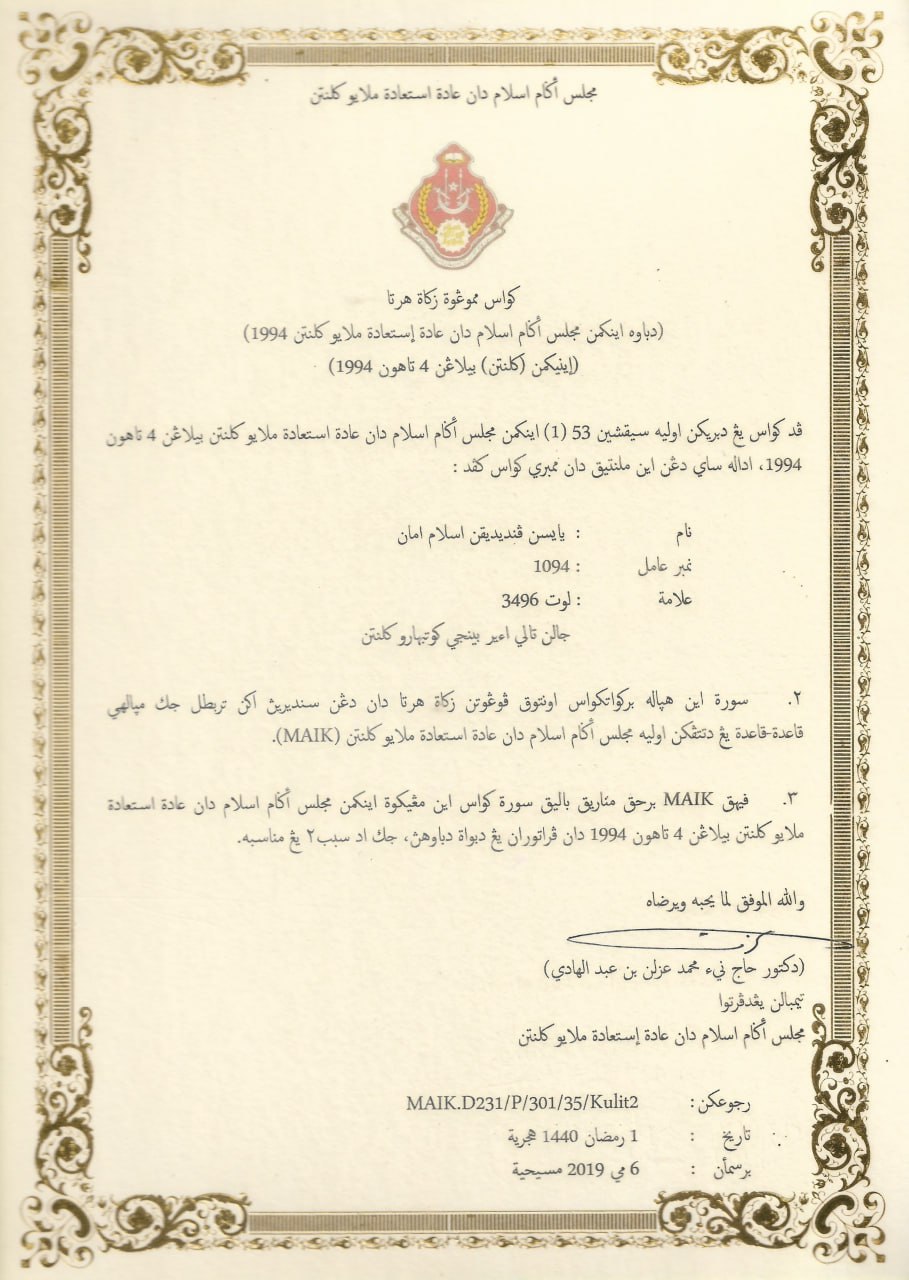 مجلس أݢام اسلام دان عادة استعادة ملايو كلنتن
كواس مموڠوة زكاة هرتا
(دباوه اينكمن مجلس أݢام اسلام دان عادة إستعادة ملايو كلنتن 1994)
(إينيكمن (كلنتن) بيلاڠن 4 تاهون 1994)
ڤد كواس يڠ دبريكن اوليه سيقشين 53 (1) اينكمن مجلس أݢام اسلام دان عادة استعادة ملايو كلنتن بيلاڠن 4 تاهون
1994، اداله ساي دڠن اين ملنتيق دان ممبري كواس كڤد :
نام : يايسن ڤنديديقن اسلام امان
نمبر عامل : 1094
علامة : لوت 3496
جالن تالي اءير بينجي كوتبهارو كلنتن
٢. سورة اين هڽاله بركواتكواس اونتوق ڤوڠوتن زكاة هرتا دان دڠن سنديريڽ اكن تربطل جك مڽالهي
قاعدة-قاعدة يڠ دتتڤكن اوليه مجلس أݢام اسلام دان عادة استعادة ملايو كلنتن (MAIK).
٣. ڤيهق MAIK برحق مناريق باليق سورة كواس اين مڠيكوة اينكمن مجلس أݢام اسلام دان عادة استعادة
ملايو كلنتن بيلاڠن 4 تاهون 1994 دان ڤراتوران يڠ دبواة دباوهڽ، جك اد سبب٢ يڠ مناسبه.
والله الموفق لما يحبه ويرضاه
(دكتور حاج نيء محمد عزلن بن عبد الهادي)
تيمبالن يڠدڤرتوا
مجلس أݢام اسلام دان عادة إستعادة ملايو كلنتن
رجوعكن: MAIK.D231/P/301/35/Kulit2
تاريخ : 1 رمضان 1440 هجرية
برسمأن : 6 مي 2019 مسيحية